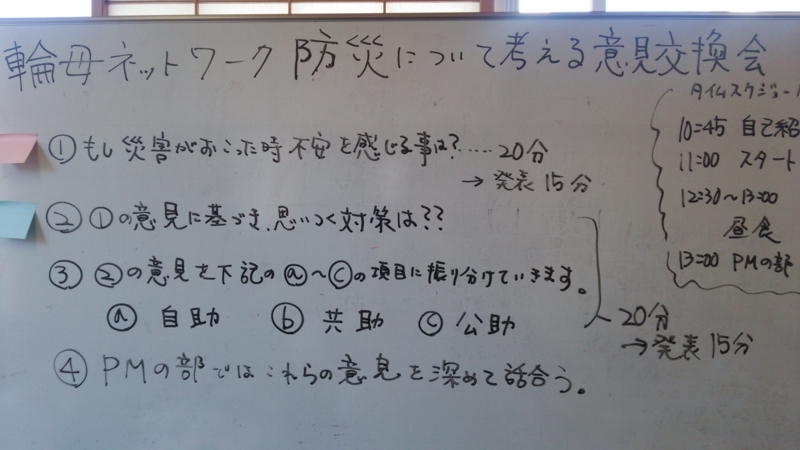 輪母ネットワーク 防災について考える意見交換会
①もし災害がおこった時不安を感じる事は?‥‥‥20分
→発表15分
②①の意見に基づき、思いつく対策は??
③②の意見を下記のⓐ〜ⓒの項目に振り分けていきます。
ⓐ 自助 ⓑ 共助 ⓒ 公助
20分
→発表15分
④PMの部ではこれらの意見を深めて話合う。
タイムスケジュール
10:45 自己紹
11:00 スタート
12:30〜13:00
昼食
13:00 PMの部